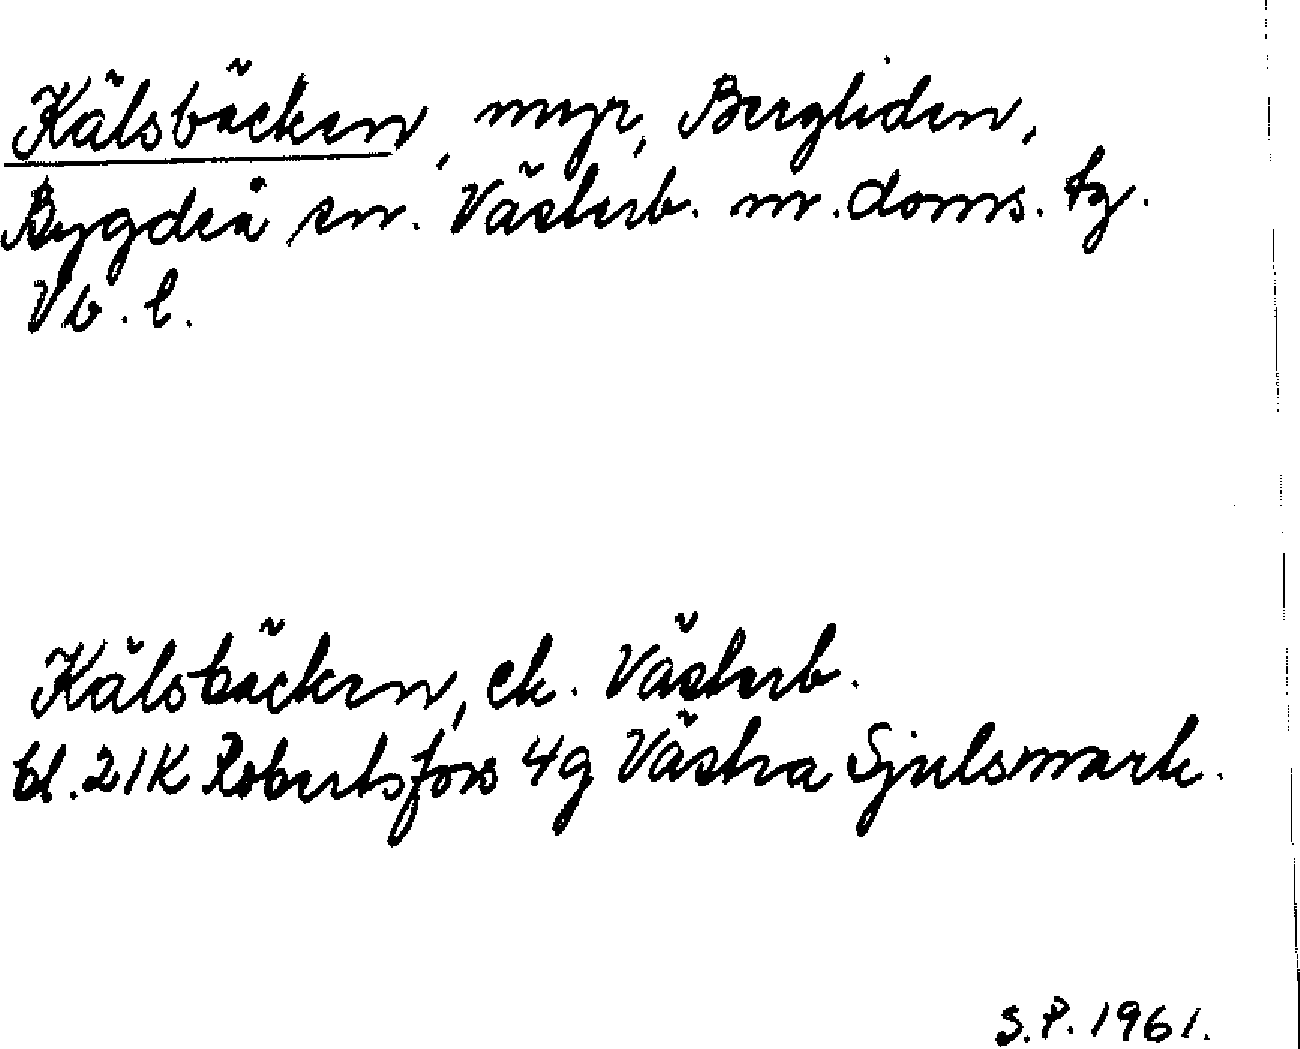 Kälsbäcken, myr, Bergliden,
Bygdeå sn. Västerb. m. doms. tg.
Vb. l.
Kälsbäcken, ek. Västerb.
bl. 21K Robertsfors 4g Västra Sjulsmark.
S.P. 1961.